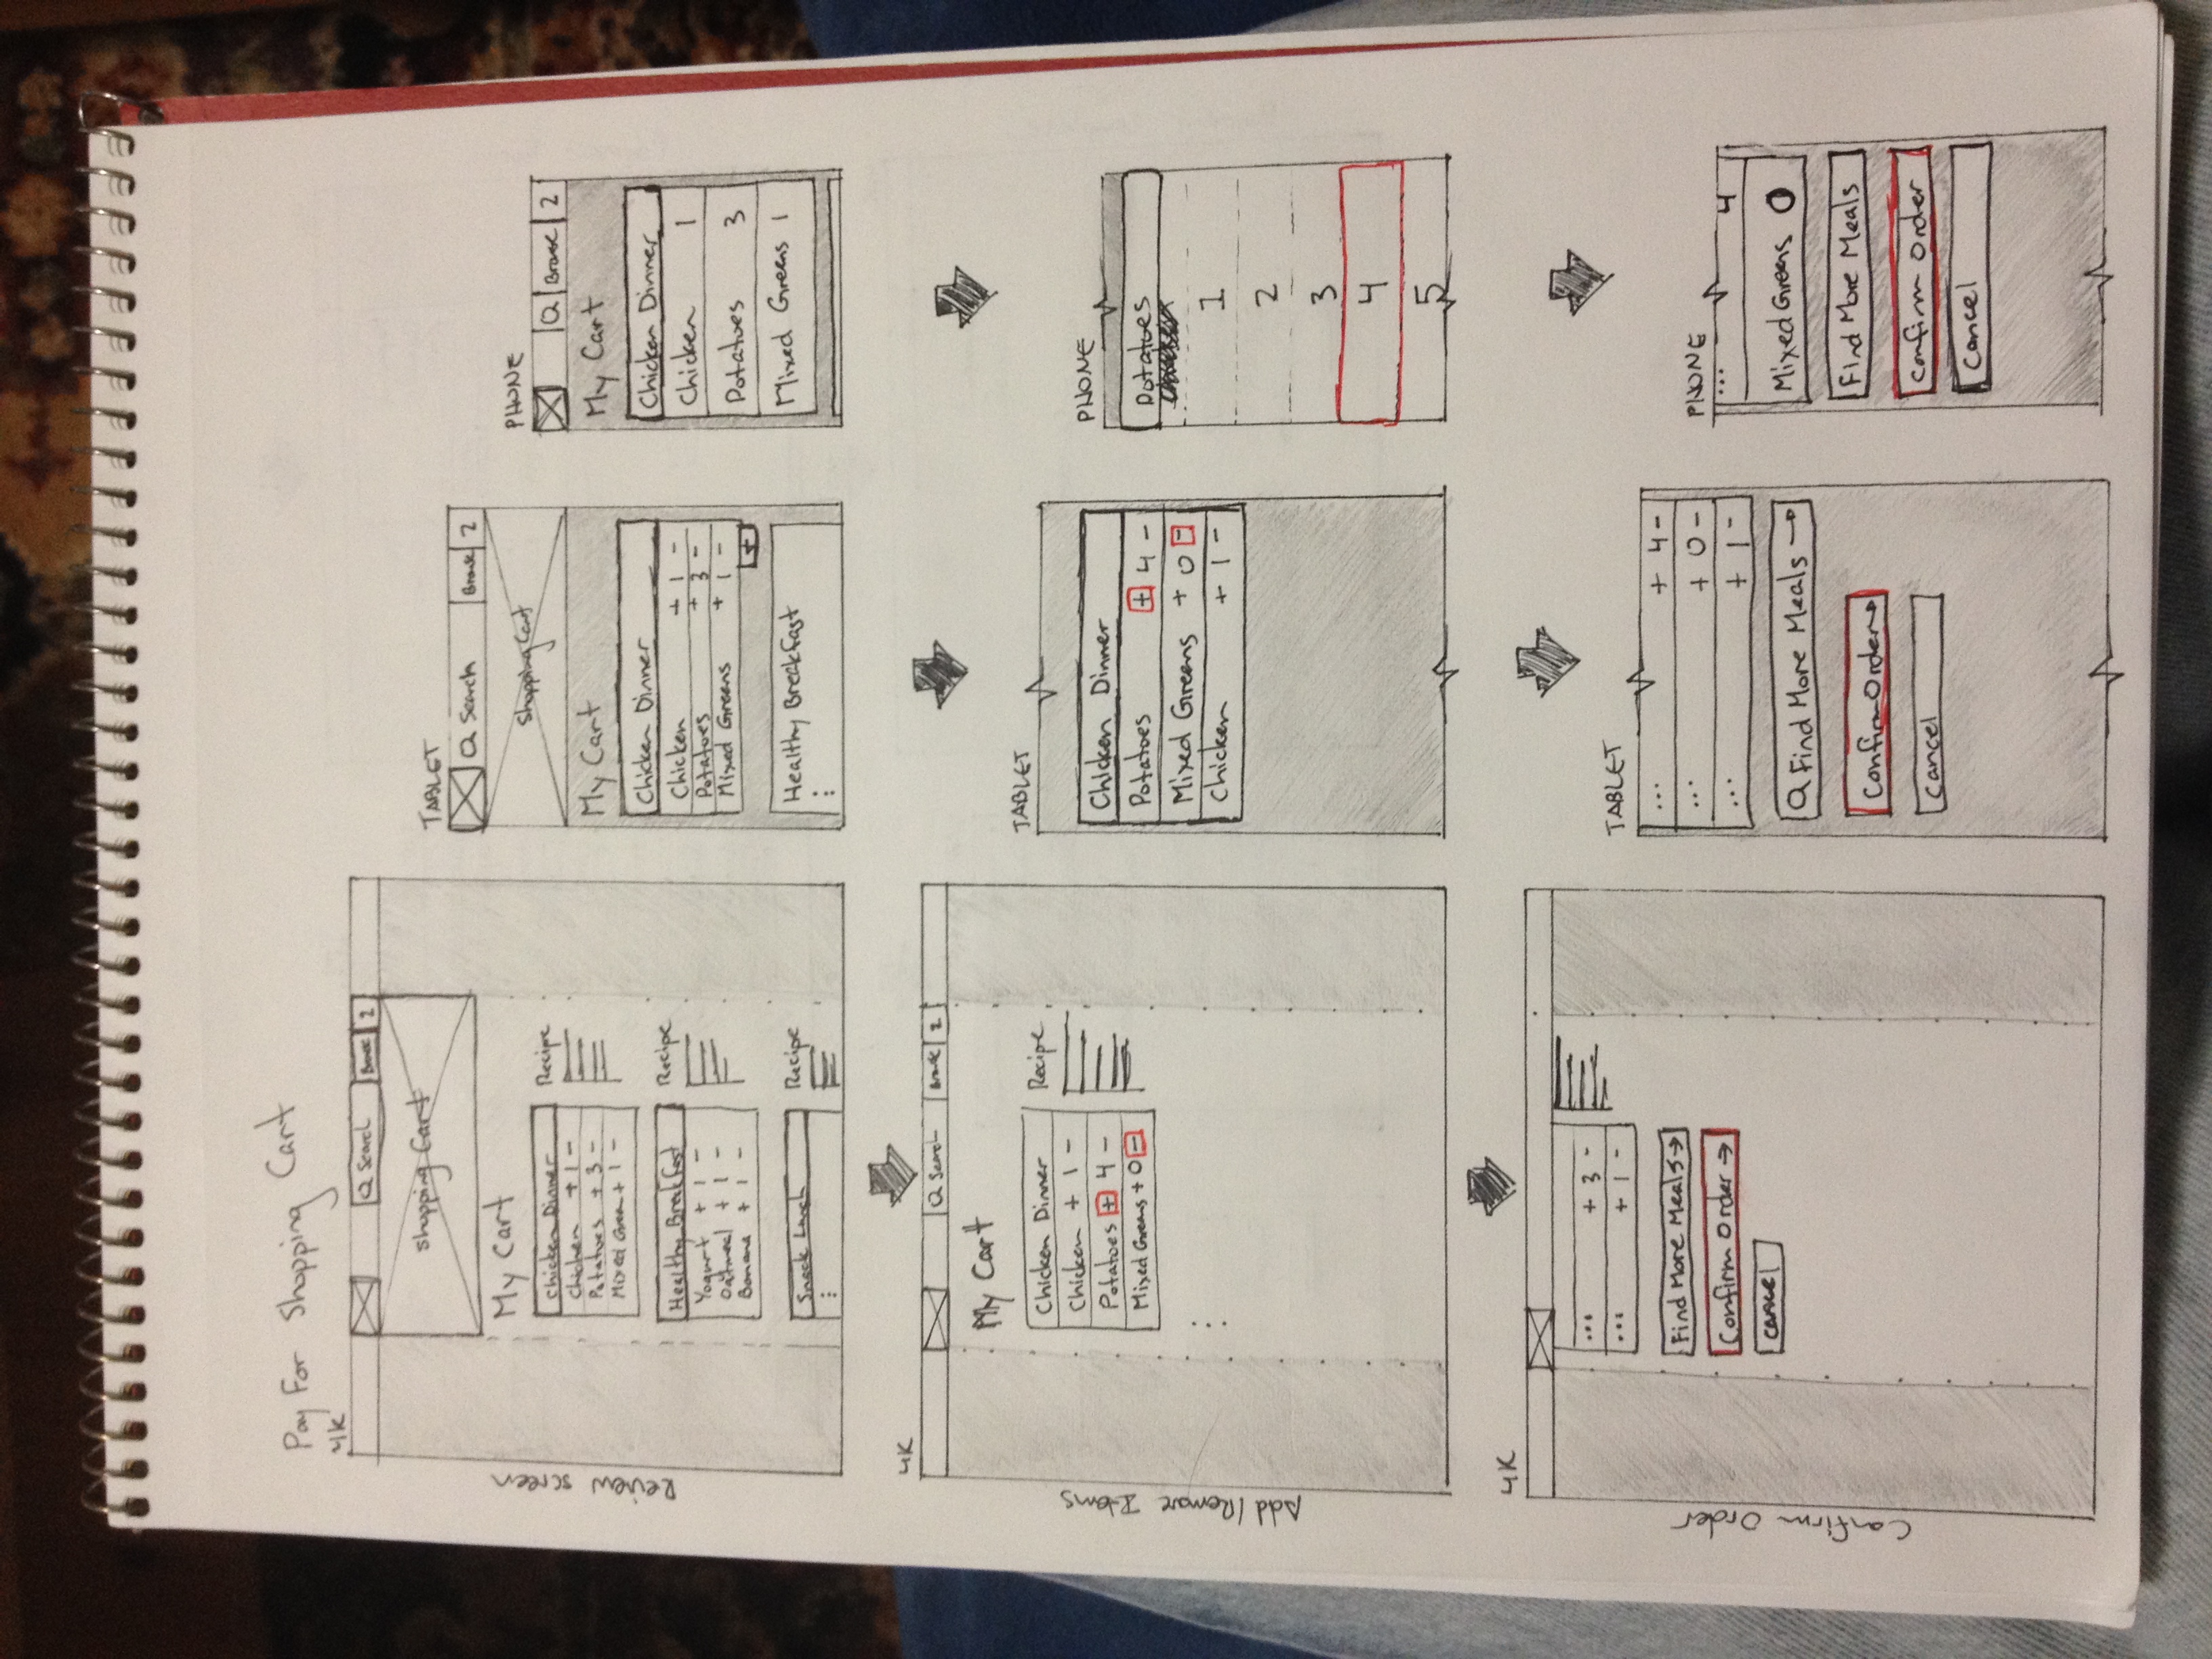 Pay For Shopping Cart
Review screen
4K
Q Search Browse 2
Shopping Cart
My Cart
Chicken Dinner
Chicken + 1 -
Potatoes + 3 -
Mixed Green + 1 -
Recipe
Healthy Breakfast
Yogurt + 1 -
Oatmeal + 1 -
Banana + 1 -
Recipe
Snack Lunch
Recipe
TABLET
Q Search Browse 2
Shopping Cart
My Cart
Chicken Dinner
Chicken + 1 -
Potatoes + 3 -
Mixed Greens + 1 -
+
Healthy Breakfast
PHONE
Q Browse 2
My Cart
Chicken Dinner
Chicken 1
Potatoes 3
Mixed Greens 1
Add/Remove Items
4K
Q Search Browse 2
My Cart
Chicken Dinner
Chicken + 1 -
Potatoes + 4 -
Mixed Greens + 0 -
Recipe
TABLET
Chicken Dinner
Potatoes + 4 -
Mixed Greens + 0 -
Chicken + 1 -
PHONE
Potatoes
1
2
3
4
5
Confirm Order
4K
... + 3 -
... + 1 -
Find More Meals →
Confirm Order →
CANCEL
TABLET
... + 4 -
... + 0 -
... + 1 -
Q Find More Meals →
Confirm Order →
Cancel
PHONE
... 4
Mixed Greens 0
Find More Meals
Confirm Order
Cancel